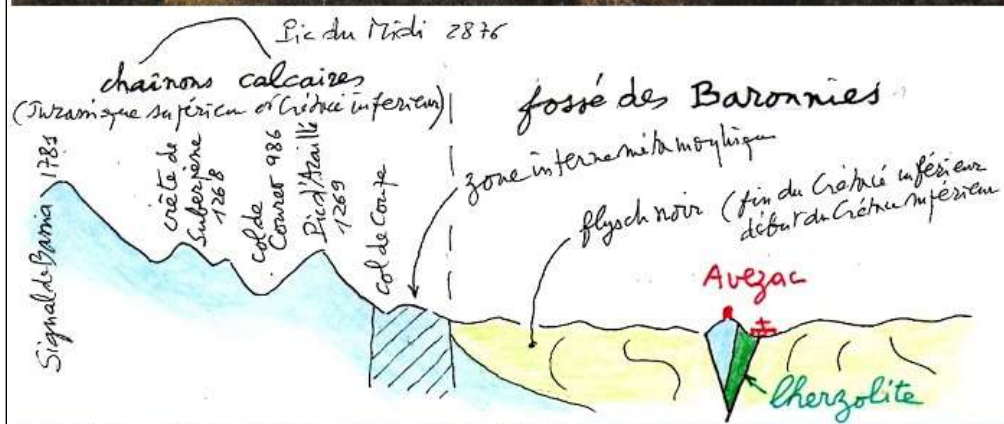 Pic du Midi 2876
chaînons calcaires
(Jurassique supérieur et Crétacé inférieur)
Signal de Bassia 1781
crête de
Suberpène
1268
col de
Couret 986
Pic d'Araillé
1269
col de Coupe
fossé des Baronnies
zone interne métamorphique
flysch noir (fin du Crétacé inférieur
début du Crétacé supérieur
Avezac
lherzolite